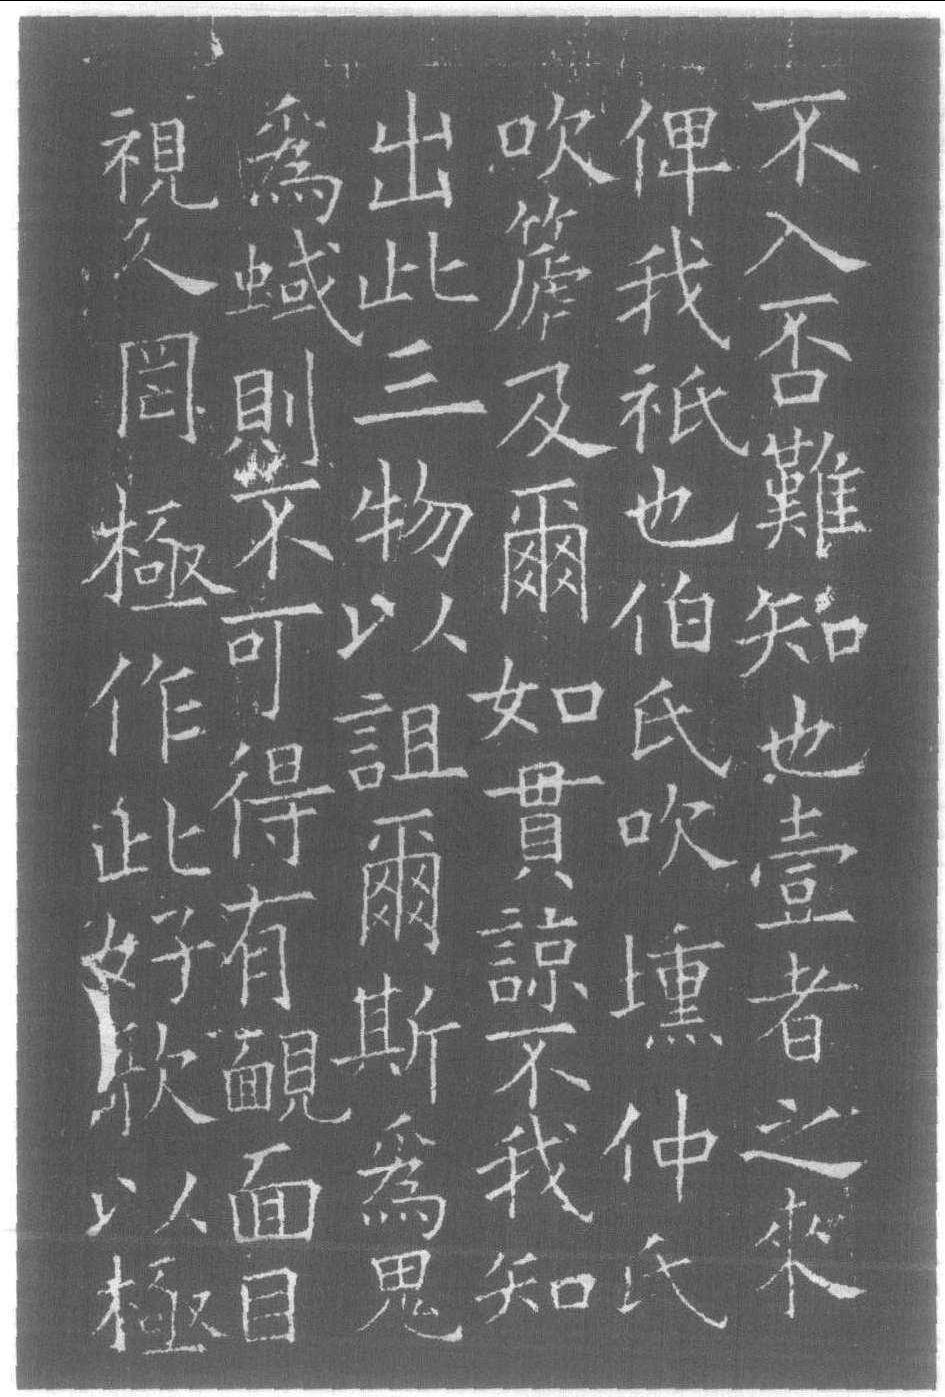 不入否難知也壹者之來
俾我祇也伯氏吹壎仲氏
吹篪及爾如貫諒不我知
出此三物以詛爾斯為鬼
為蜮則不可得有靦面目
視久罔極作此好歌以極